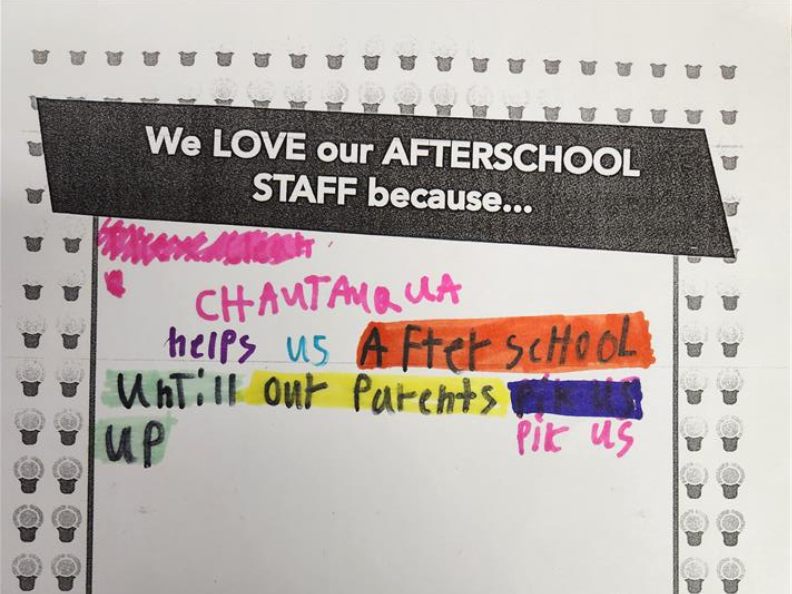 We LOVE our AFTERSCHOOL
STAFF because...
CHAUTAUQUA
helps us AFter scHooL
UnTill our Parents Pik us
UP Pik us